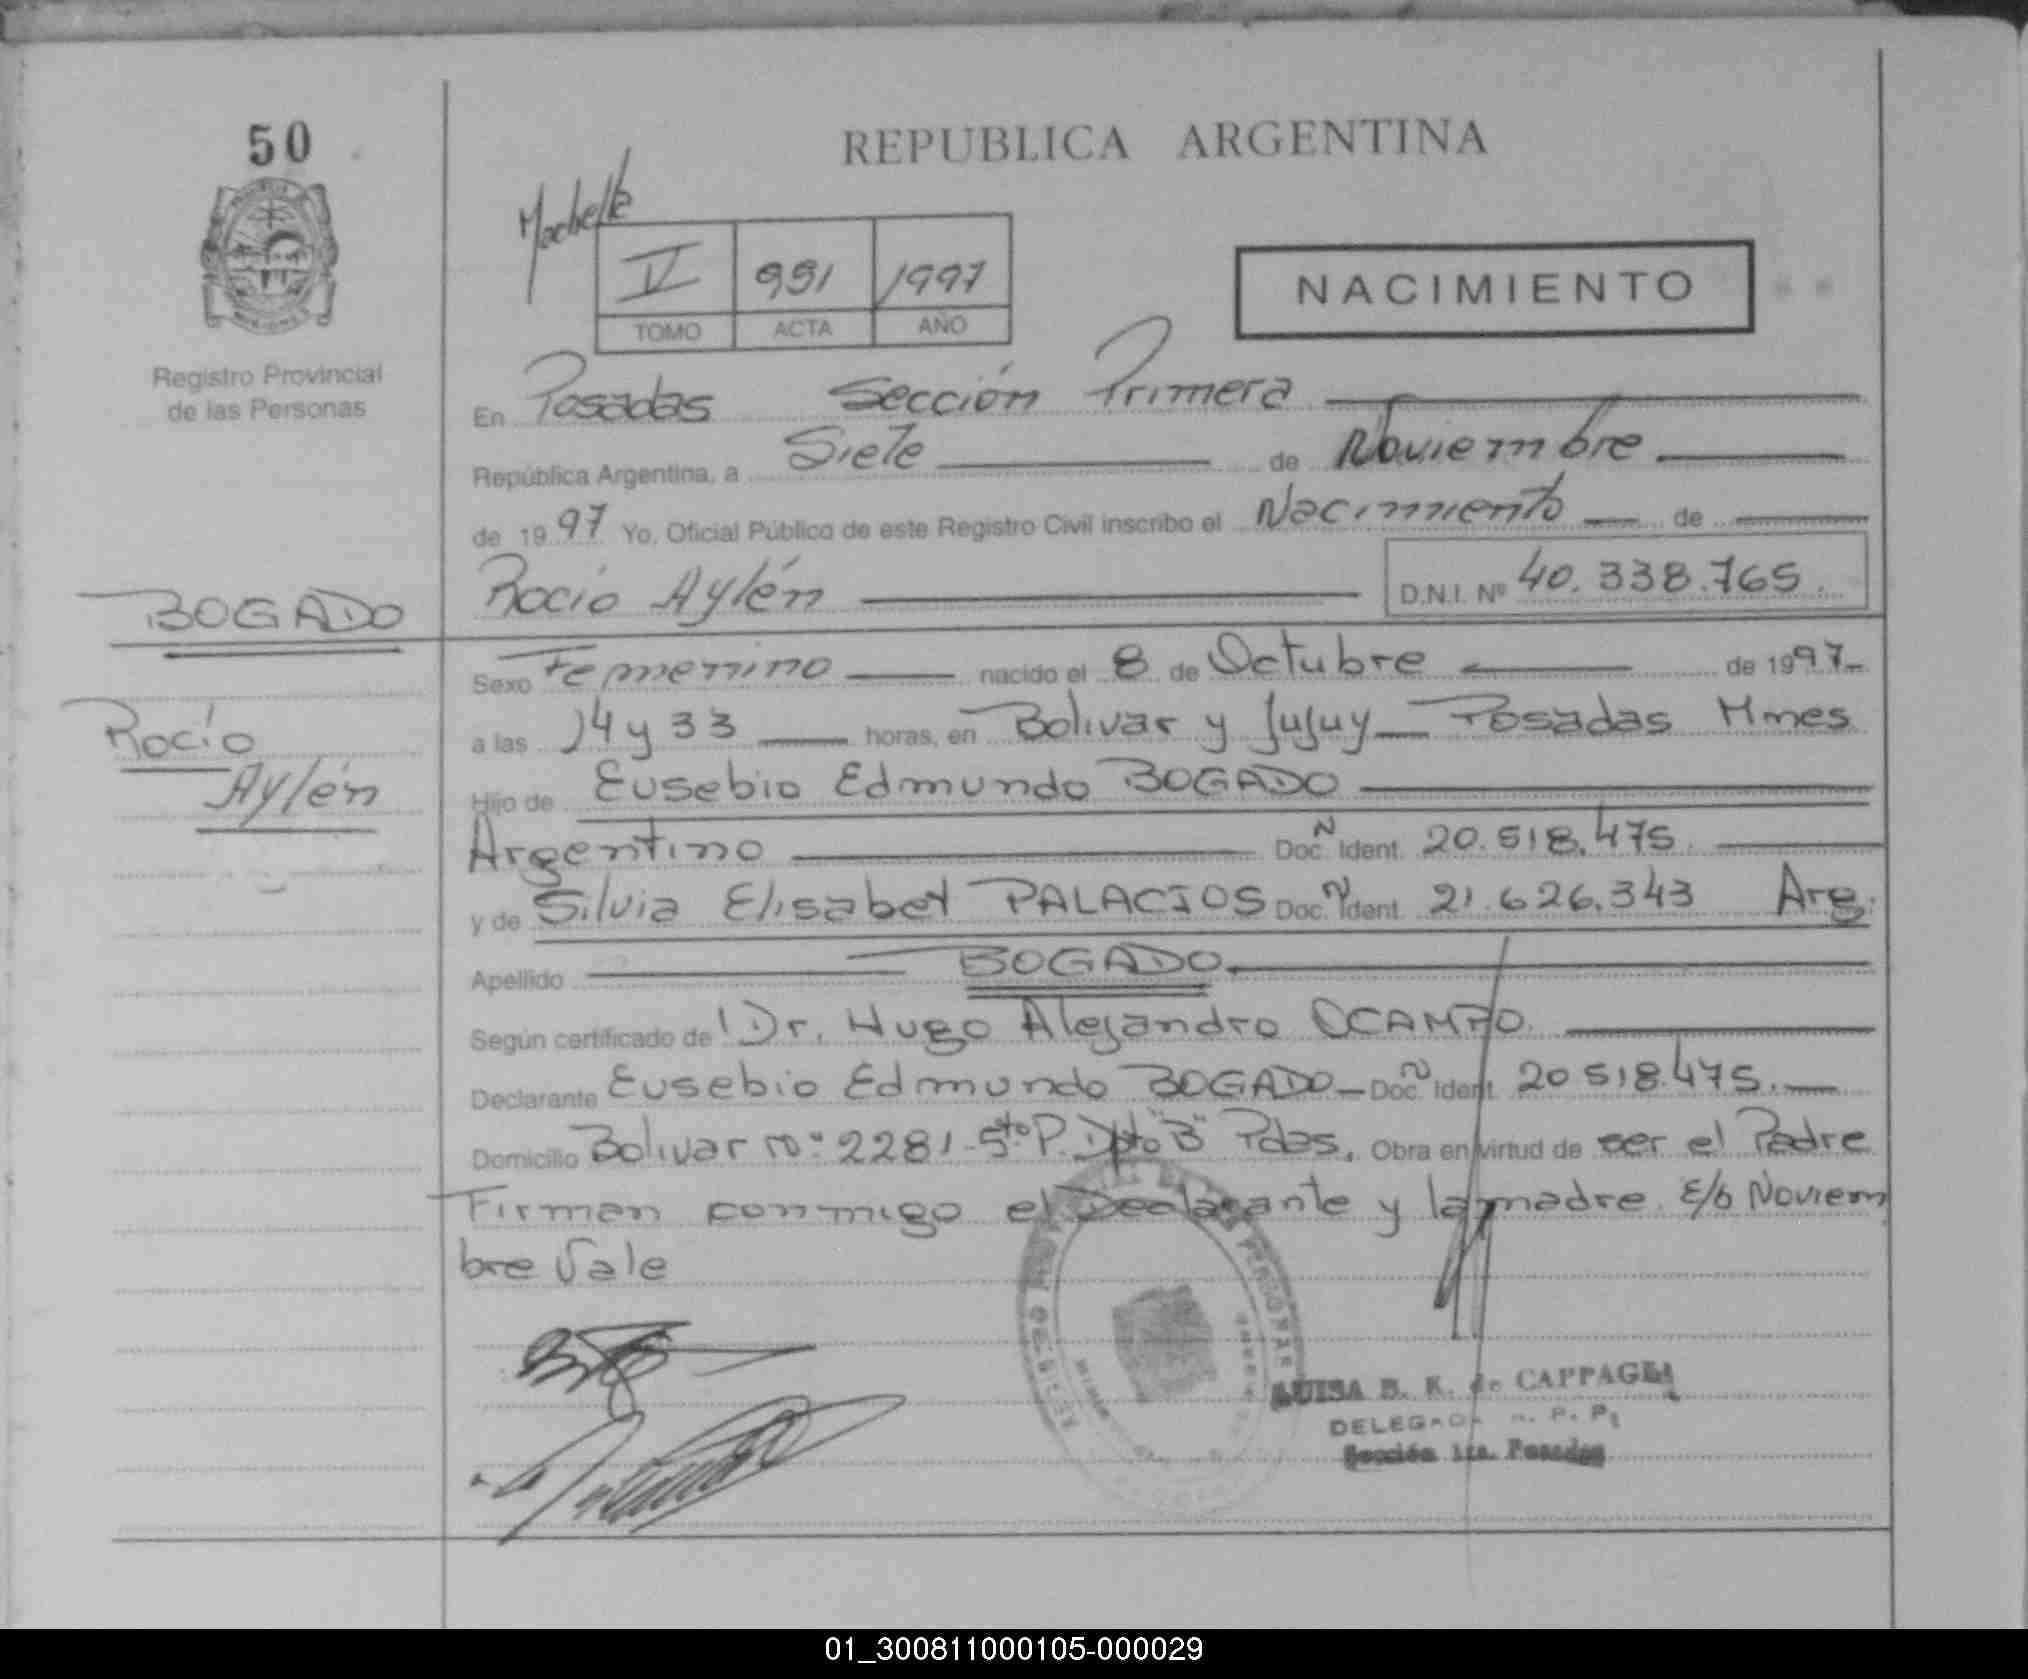 50
REPUBLICA ARGENTINA
V 991 1997
TOMO ACTA AÑO
NACIMIENTO
Registro Provincial
de las Personas
En Posadas Sección Primera
República Argentina, a Siete de Noviembre
de 1997 Yo, Oficial Público de este Registro Civil inscribo el Nacimiento de
Rocío Aylén D.N.I. Nº 40.338.765.
BOGADO
Rocío
Aylén
Sexo Femenino nacido el 8 de Octubre de 1997
a las 14 y 33 horas, en Bolivar y Jujuy Posadas Mnes
Hijo de Eusebio Edmundo BOGADO
Argentino Doc. Ident. 20.518.475
y de Silvia Elisabet PALACIOS Doc. Ident. 21.626.343 Arg.
Apellido BOGADO
Según certificado de Dr. Hugo Alejandro OCAMPO
Declarante Eusebio Edmundo BOGADO Doc. Ident. 20518.475.
Domicilio Bolivar Nº 2281-5to P. Dpto "B" Pdas. Obra en virtud de ser el Padre
Firman conmigo el Declarante y la madre. E/b Noviem
bre Vale
LUISA B. K. de CAPPAGLI
DELEGADA R. P. P.
Sección 1ra. Posadas
01_300811000105-000029